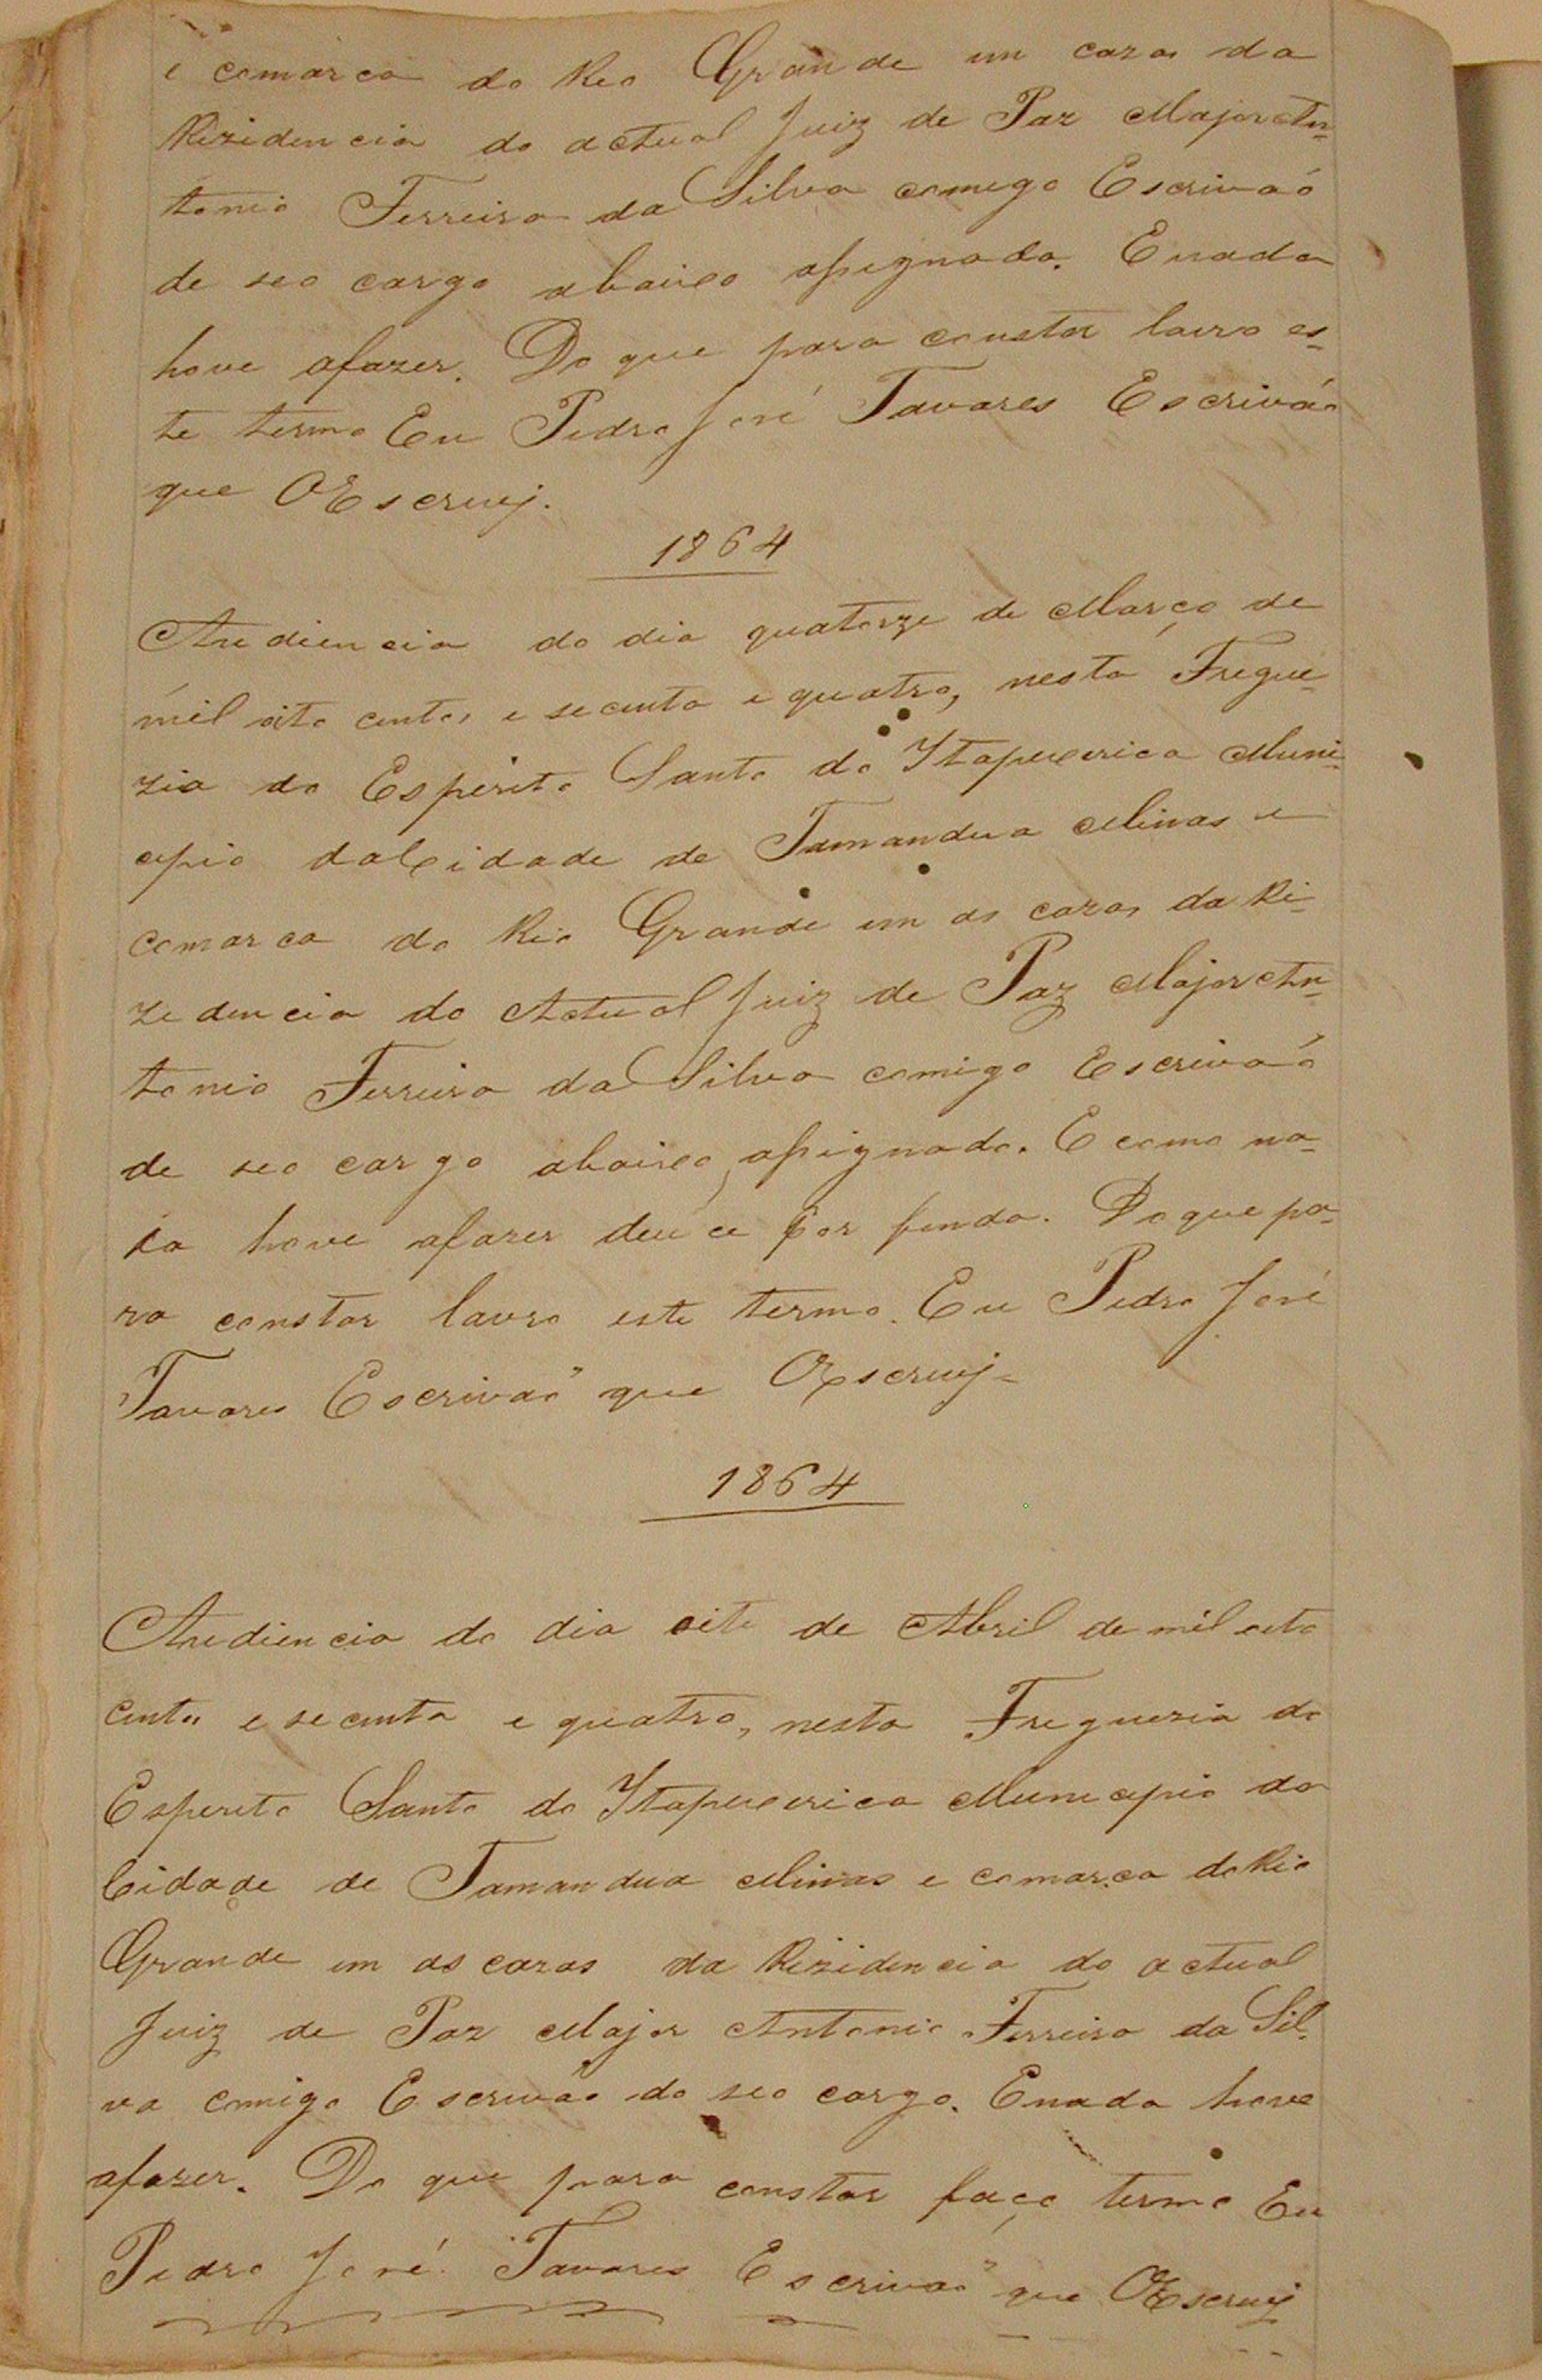 e comarca do Rio Grande em cazas da
Rizidencia do actual Juiz de Paz Major An-
tonio Ferreira da Silva comigo Escrivaó
de seo cargo abaixo assignado. E nada
hove afazer. Do que para constar lavro es-
te termo Eu Pedro José Tavares Escriváo
que OEscruvj.
1864
Audiencia do dia quatorze de Março de
mil oito centos e secenta e quatro, nesta Fregue-
zia do Esperito Santo do Itapecirica Muni-
cipio daCidade de Tamandua Minas e
comarca do Rio Grande em as cazas da Ri-
zedencia do Actual Juiz de Paz Major An-
tonio Ferreira da Silva comigo Escrivaó
de seo cargo abaixo assignado. E como na-
da hove afazer deu ce por findo. Do que pa-
ra constar lavro este termo. Eu Pedro José
Tavares Escrivaõ que OEscruvj-
1864
Audiencia do dia oite de Abril de mil oito
centos e secenta e quatro, nesta Freguezia do
Esperito Santo do Itapecirica Municipio da
Cidade de Tamandua Minas e comarca do Rio
Grande em as cazas da Rizidencia do actual
Juiz de Paz Major Antonio Ferreira da Sil-
va comigo Escrivão do seo cargo. E nada hove
afazer. Do que para constar faço termo Eu
Pedro José Tavares Escrivaõ que OEscruvj